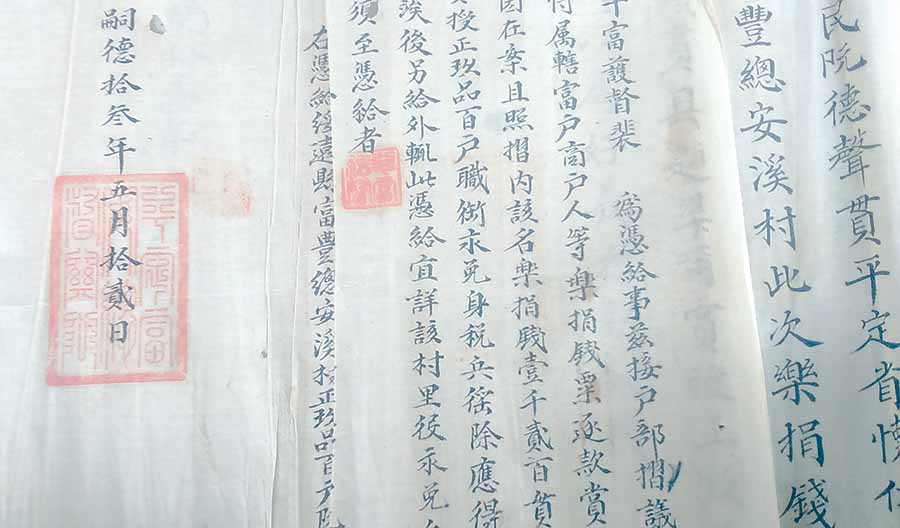 民阮德聲貫平定省懷仁
豐總安溪村此次樂捐錢
平富護督裴
爲憑給事茲接户部摺議
属轄富户商户人等樂捐錢粟逐款賞
因在案且照摺内該名樂捐錢壹千貳百貫
授正玖品百户職銜永免身税兵徭除應得
俟後另給外輒此憑給宜詳該村里役永免
須至憑給者
右憑給綏遠縣富豐總安溪村正玖品百户阮
嗣德拾叁年五月拾貳日